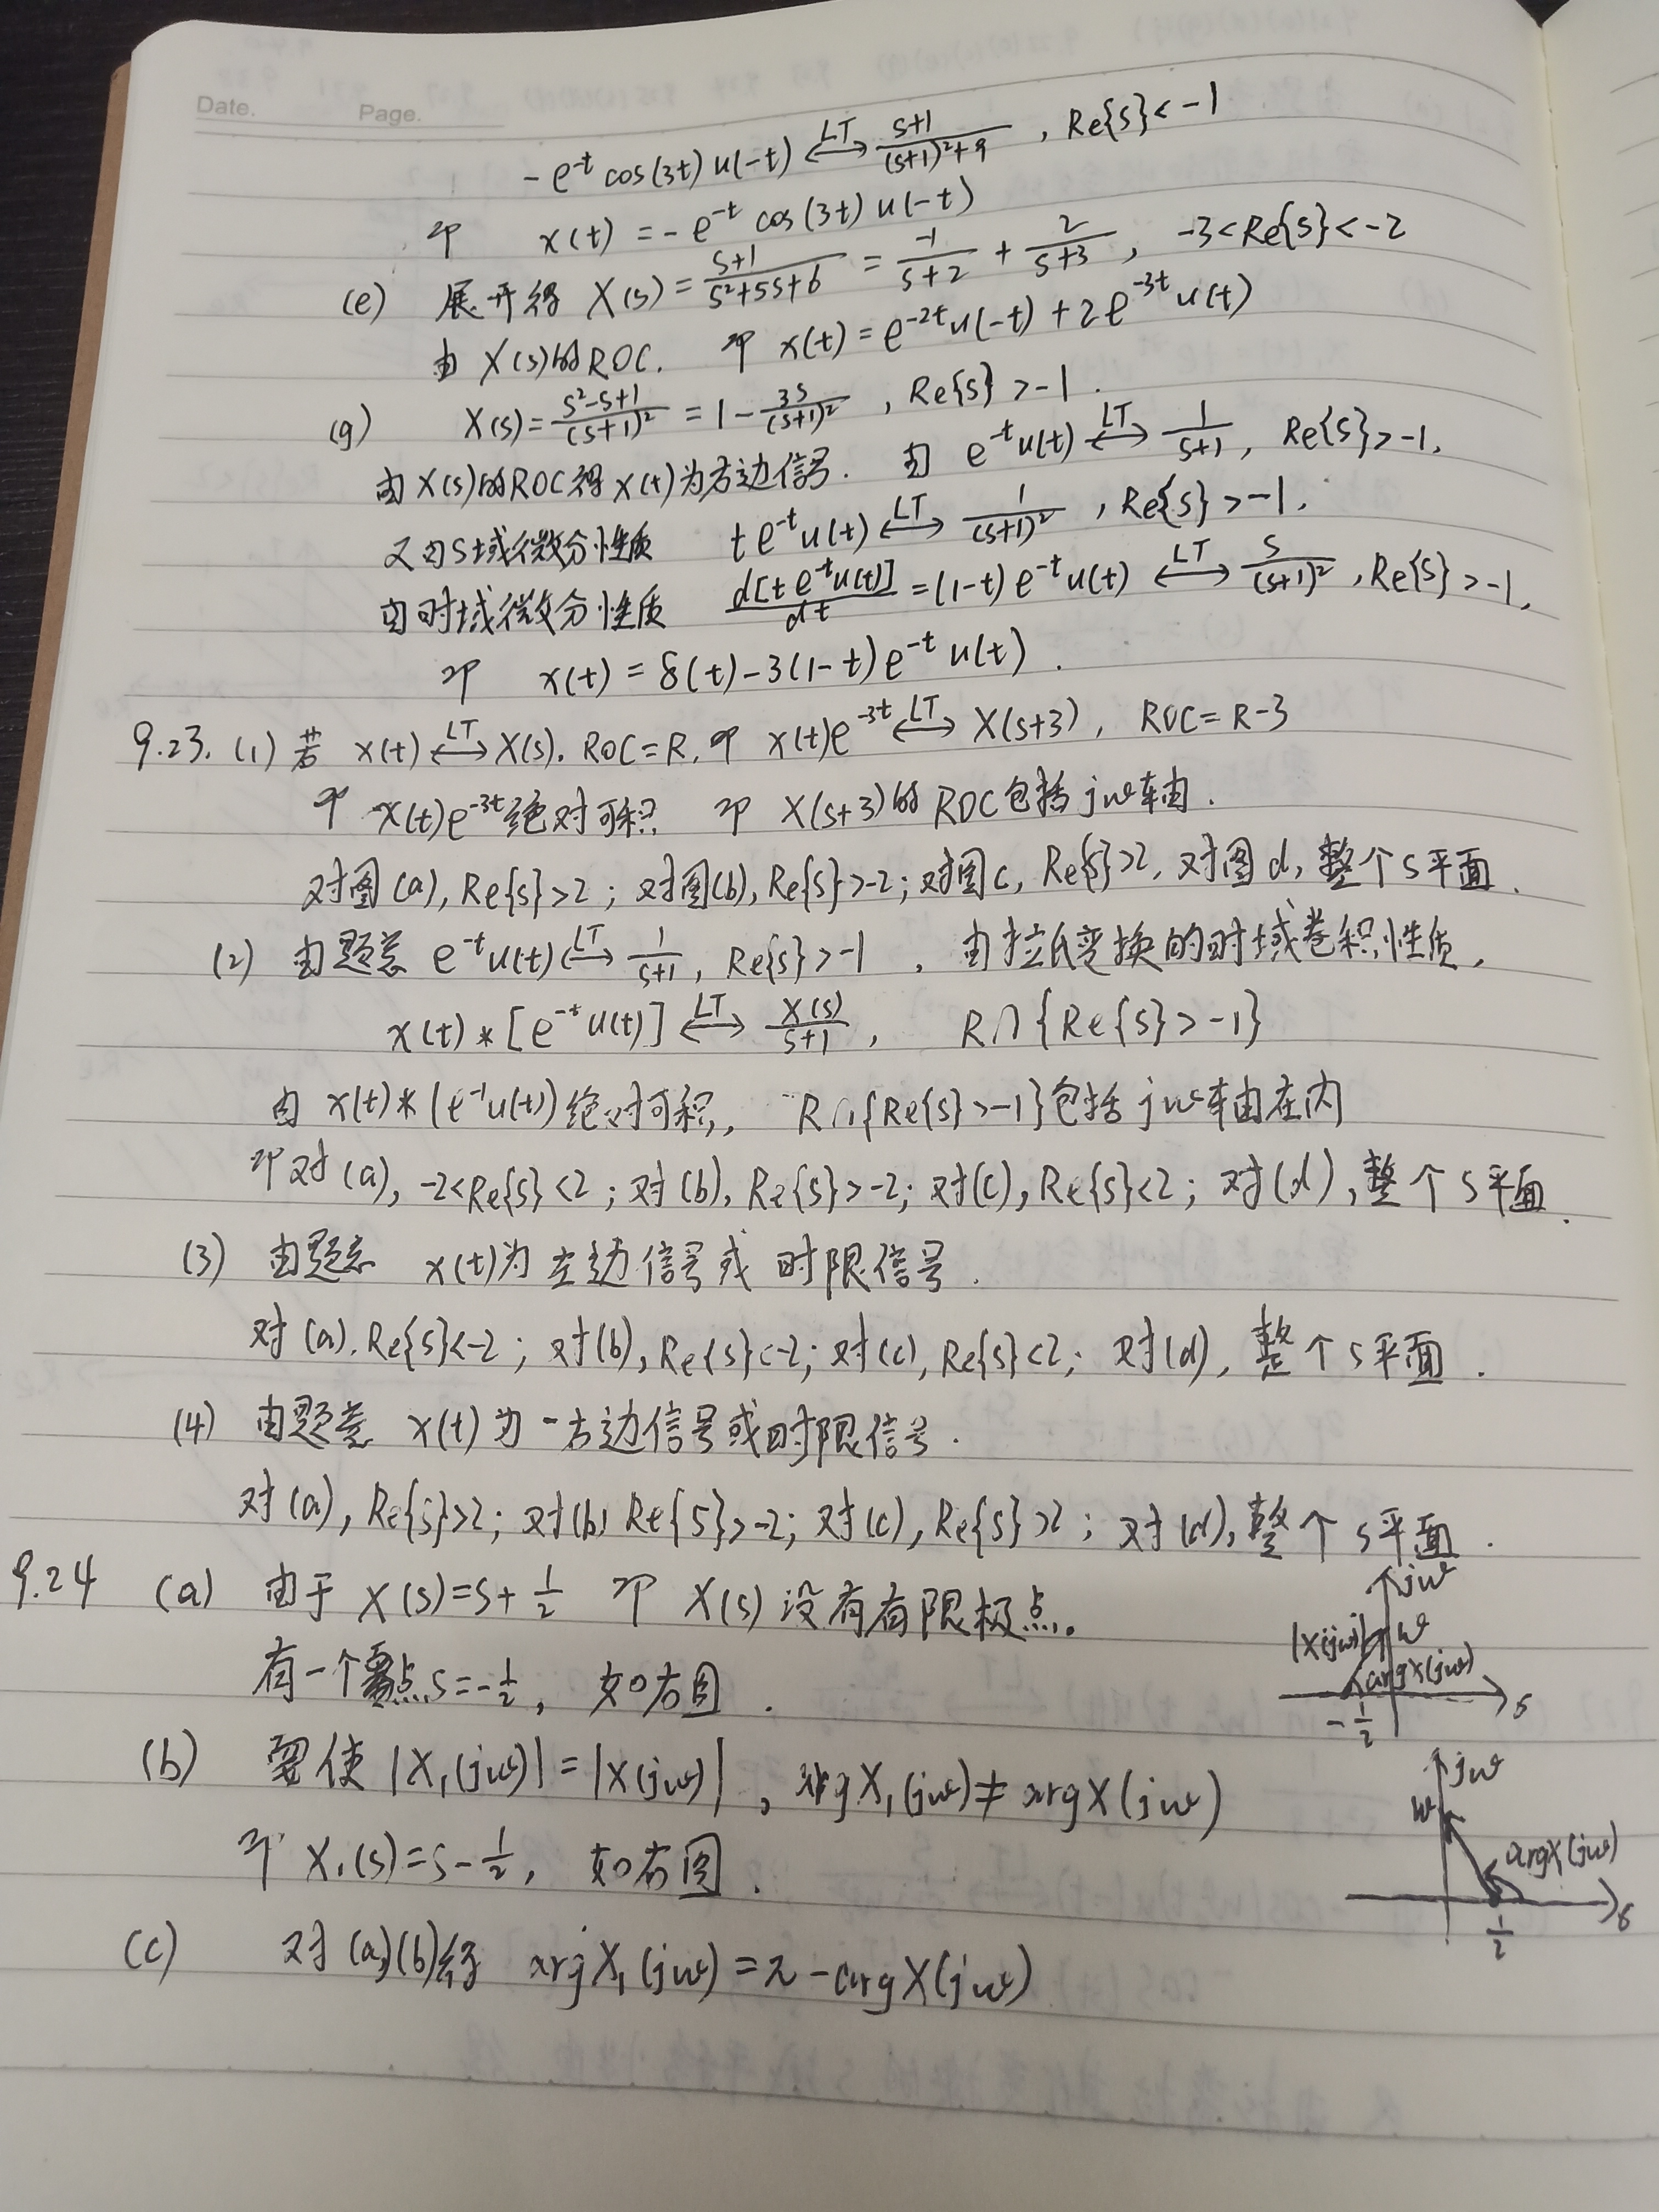 Date. Page.
-e^{-t} cos(3t) u(-t) \overset{LT}{\longleftrightarrow} \frac{s+1}{(s+1)^2+9} , Re{s}<-1
即 x(t) = -e^{-t} cos(3t) u(-t)
(e) 展开得 X(s) = \frac{s+1}{s^2+5s+6} = \frac{-1}{s+2} + \frac{2}{s+3}, -3<Re{s}<-2
由 X(s)的ROC. 即 x(t) = e^{-2t}u(-t) + 2e^{-3t}u(t)
(g) X(s) = \frac{s^2-s+1}{(s+1)^2} = 1 - \frac{3s}{(s+1)^2} , Re{s} >-1.
由X(s)的ROC得x(t)为右边信号. 由 e^{-t}u(t) \overset{LT}{\longleftrightarrow} \frac{1}{s+1}, Re{s}>-1,
又由S域微分性质 te^{-t}u(t) \overset{LT}{\longleftrightarrow} \frac{1}{(s+1)^2} , Re{s}>-1,
由时域微分性质 \frac{d[te^{-t}u(t)]}{dt} = (1-t)e^{-t}u(t) \overset{LT}{\longleftrightarrow} \frac{s}{(s+1)^2} , Re{s}>-1,
即 x(t) = δ(t)-3(1-t)e^{-t}u(t) .
9.23. (1) 若 x(t) \overset{LT}{\longleftrightarrow} X(s). ROC=R, 即 x(t)e^{-3t} \overset{LT}{\longleftrightarrow} X(s+3), ROC=R-3
即 x(t)e^{-3t}绝对可积 即 X(s+3)的ROC包括jω轴.
对图(a), Re{s}>2; 对图(b), Re{s}>-2; 对图c, Re{s}>2, 对图d, 整个s平面.
(2) 由题意 e^{-t}u(t) \overset{LT}{\longleftrightarrow} \frac{1}{s+1}, Re{s}>-1 , 由拉氏变换的时域卷积性质,
x(t)*[e^{-t}u(t)] \overset{LT}{\longleftrightarrow} \frac{X(s)}{s+1}, R∩{Re{s}>-1}
由 x(t)*(e^{-t}u(t))绝对可积, R∩{Re{s}>-1}包括jω轴在内
即对(a), -2<Re{s}<2; 对(b), Re{s}>-2; 对(c), Re{s}<2; 对(d), 整个s平面.
(3) 由题意 x(t)为左边信号或时限信号.
对(a). Re{s}<-2; 对(b), Re{s}<-2; 对(c), Re{s}<2; 对(d), 整个s平面.
(4) 由题意 x(t)为一右边信号或时限信号.
对(a), Re{s}>2; 对(b) Re{s}>-2; 对(c), Re{s}>2; 对(d), 整个s平面.
9.24 (a) 由于X(s)=s+\frac{1}{2} 即 X(s)没有有限极点.
有一个零点s=-\frac{1}{2}, 如右图.
jω
|X(jω)| ω
argX(jω)
-\frac{1}{2} σ
(b) 要使 |X_1(jω)| = |X(jω)| , argX_1(jω) ≠ argX(jω)
即 X_1(s)=s-\frac{1}{2}, 如右图.
jω
ω
argX_1(jω)
\frac{1}{2} σ
(c) 对(a)(b)得 argX_1(jω) = π-argX(jω)